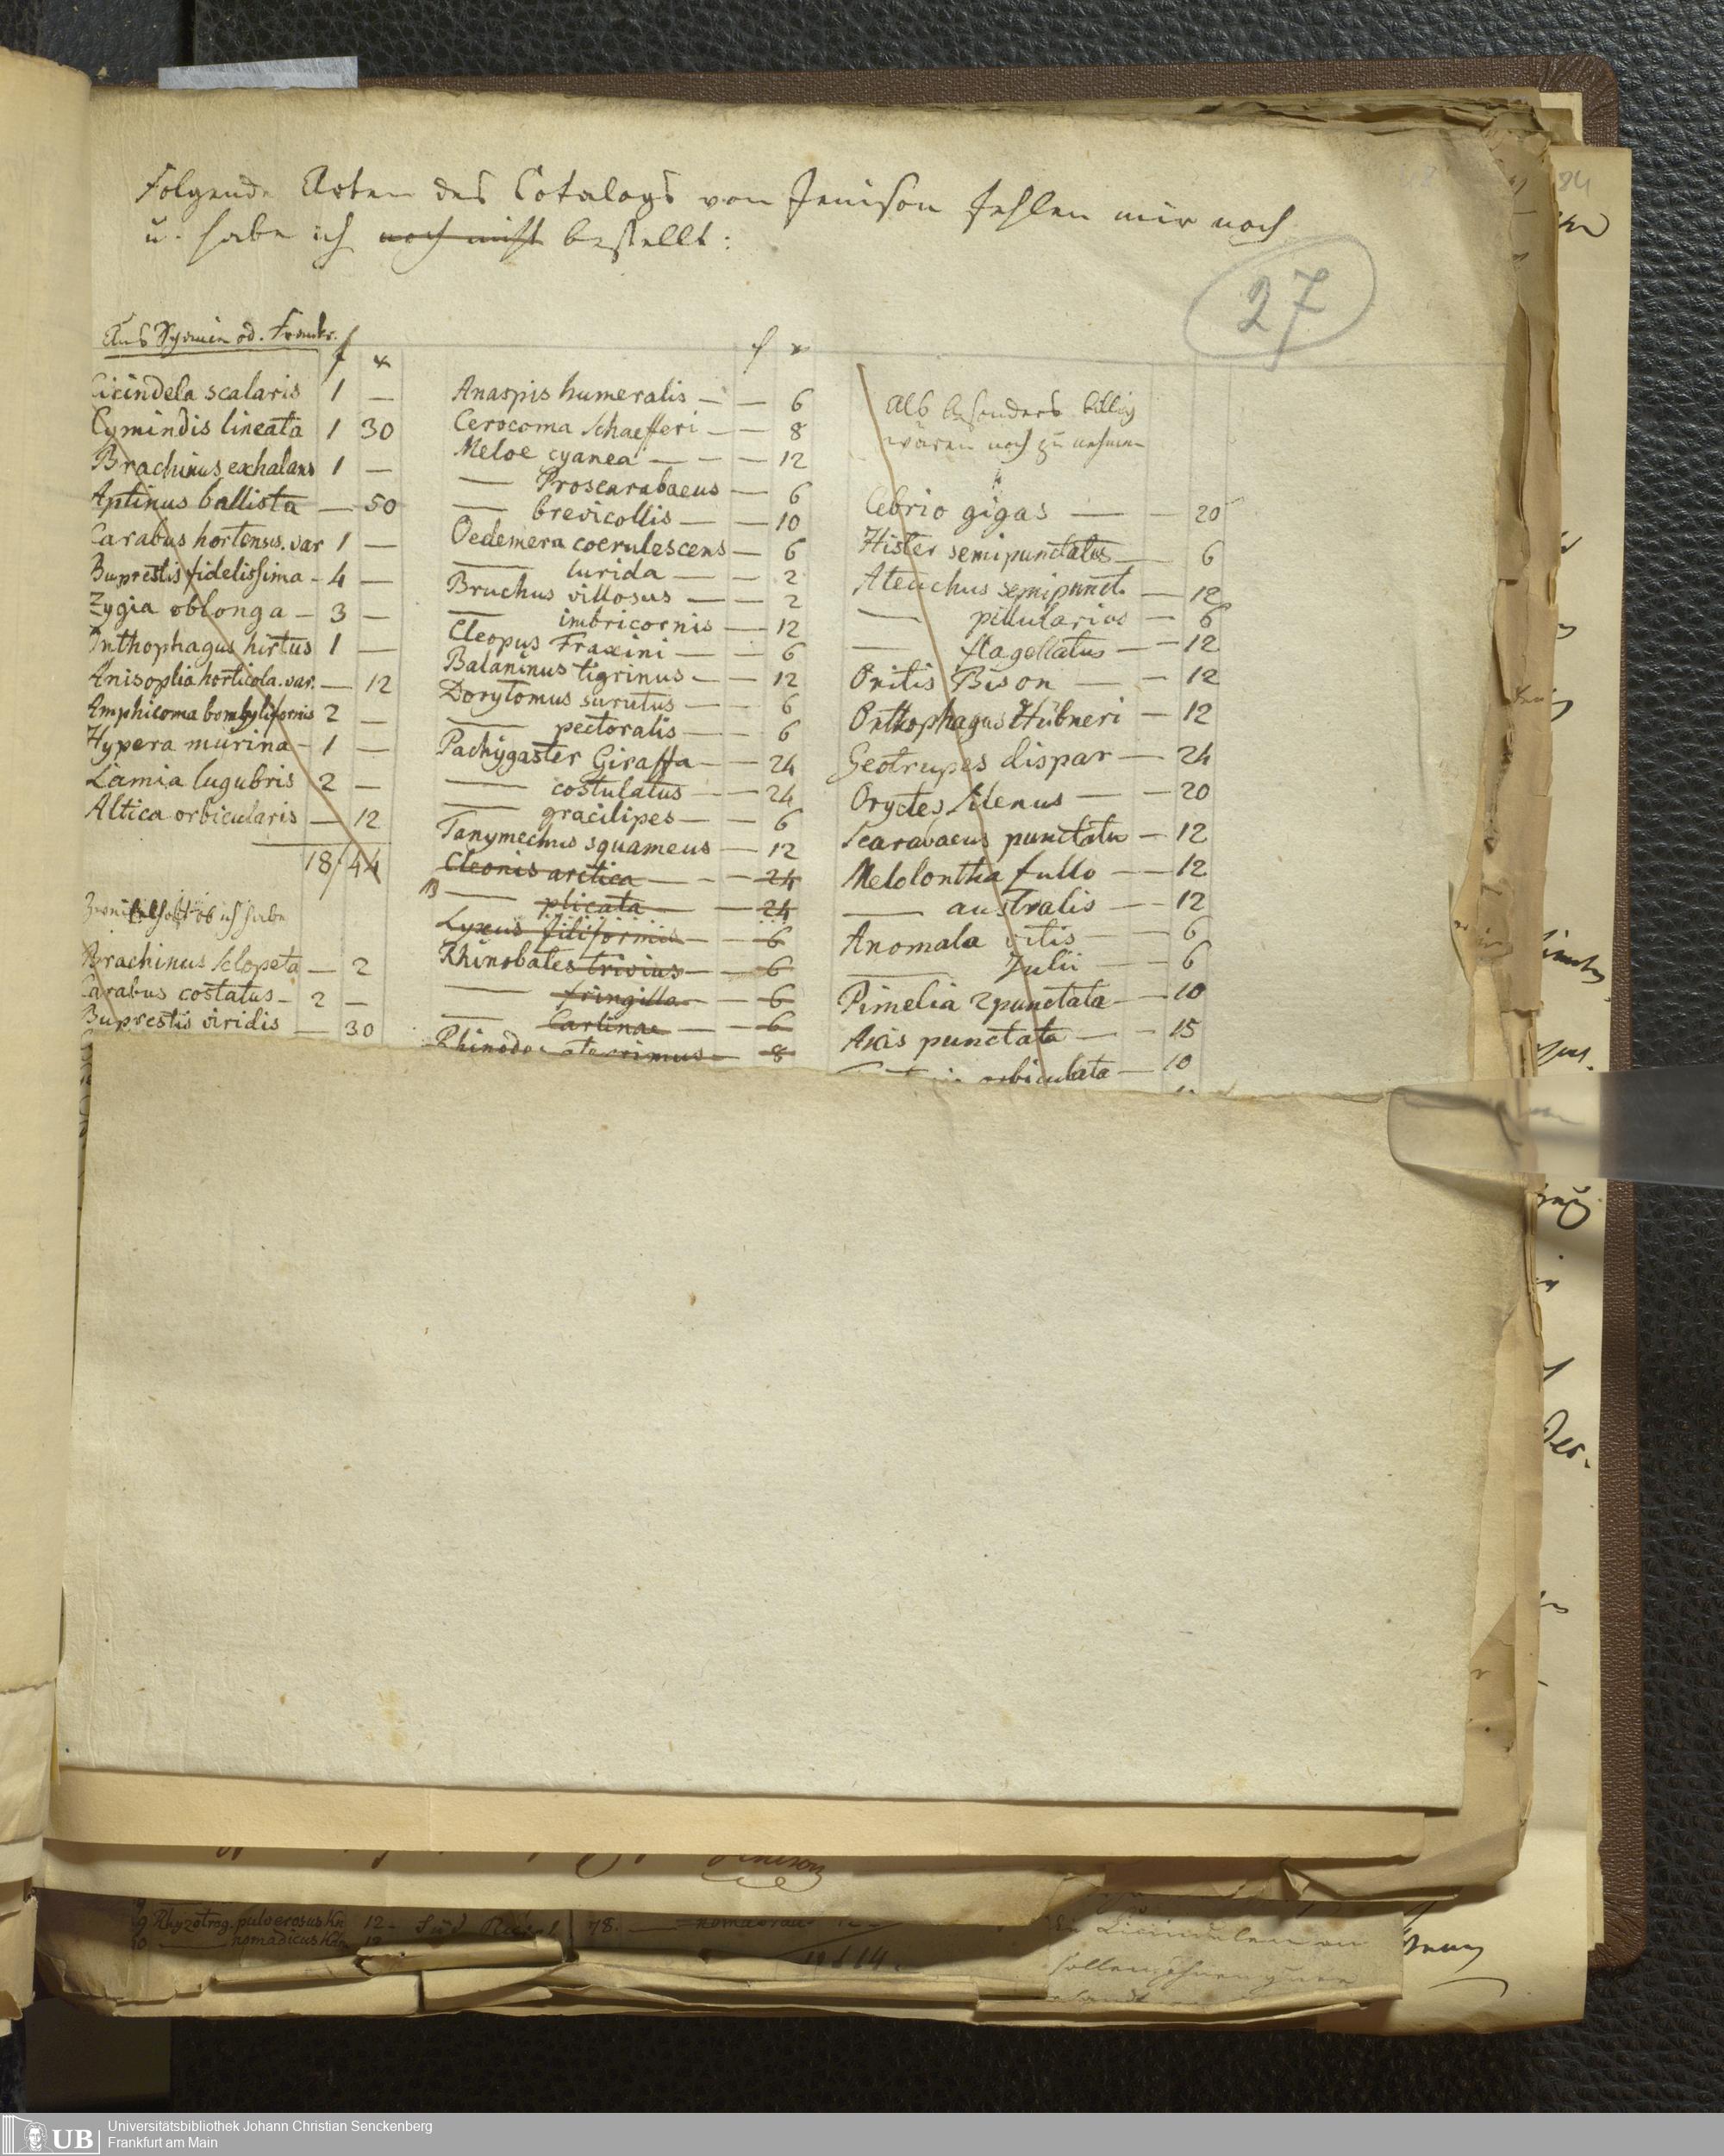 Folgende Arten des Catalogs von Jenison fehlen mir noch
u. habe ich noch nicht bestellt:
27
Aus Spanien od. Frankr.
f x
Cicindela scalaris 1 —
Cymindis lineata 1 30
Brachinus exhalans 1 —
Aptinus ballista — 50
Carabus hortensis. var 1 —
Buprestis fidelissima - 4 —
Zygia oblonga — 3 —
Onthophagus hirtus 1 —
Anisoplia horticola. var. — 12
Amphicoma bombyliformis 2 —
Hypera murina - 1 —
Lamia lugubris 2 —
Altica orbicularis — 12
18/44
Zweifelhaft ob ich habe
Brachinus sclopeta — 2
Carabus costatus - 2 —
Buprestis viridis — 30
f x
Anaspis humeralis — — 6
Cerocoma Schaefferi — — 8
Meloe cyanea — — — 12
— Proscarabaeus — 6
— brevicollis — — 10
Oedemera coerulescens — 6
— lurida — — 2
Bruchus villosus — — 2
— imbricornis — 12
Cleopus Fraxini — — 6
Balaninus tigrinus — — 12
Dorytomus surutus — — 6
— pectoralis — — 6
Pachygaster Giraffa — — 24
— costulatus — — 24
— gracilipes — — 6
Tanymechus squameus — 12
Cleonis arctica — - — 24
— plicata — — 24
Lyxus filiformis — — 6
Rhinobates trivius — — 6
— fringilla — — 6
— Carlinae — — 6
Rhinodes aterrimus — 8
Als besonders billig
wären noch zu nehmen
Cebrio gigas — — 20
Hister semipunctatus — 6
Ateuchus semipunct. — 12
— pillularius — 6
— flagellatus — — 12
Onitis Bison — — 12
Onthophagus Hübneri — 12
Geotrupes dispar — 24
Oryctes Silenus — — 20
Scarabaeus punctatus — 12
Melolontha fullo — — 12
— australis — — 12
Anomala vitis — — 6
— Julii — — 6
Pimelia 2punctata — — 10
Akis punctata — — 15
orbiculata — 10
84
Der.
Jenison
Rhyzotrog. pulverosus Kn 12 -
— nomadicus Kn 12
78.
sollen
Universitätsbibliothek Johann Christian Senckenberg
Frankfurt am Main
UB